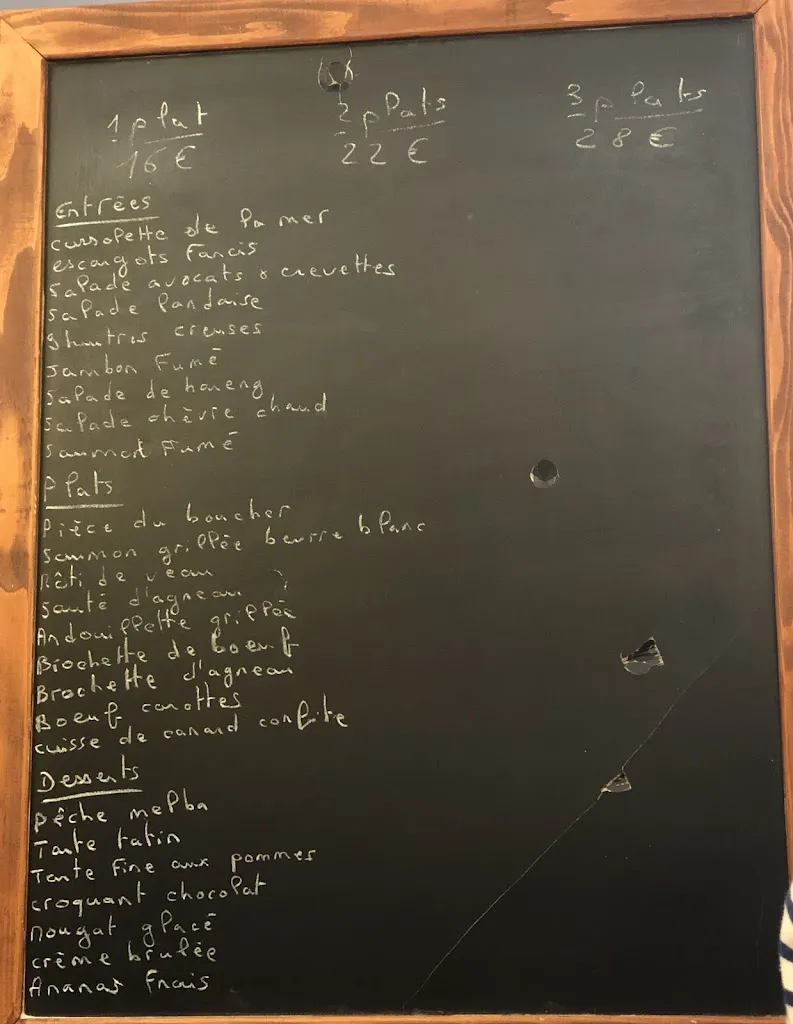 1 plat 2 plats 3 plats
16 € 22 € 28 €
Entrées
cassolette de la mer
escargots farcis
salade avocats & crevettes
salade landaise
9 huitres creuses
Jambon Fumé
salade de hareng
salade chèvre chaud
saumon Fumé
Plats
Pièce du boucher
saumon grillée beurre blanc
Rôti de veau
sauté d'agneau
Andouillette grillée
Brochette de boeuf
Brochette d'agneau
Boeuf carottes
cuisse de canard confite
Desserts
pêche melba
Tarte tatin
Tarte Fine aux pommes
croquant chocolat
nougat glacé
crème brulée
Ananas Frais